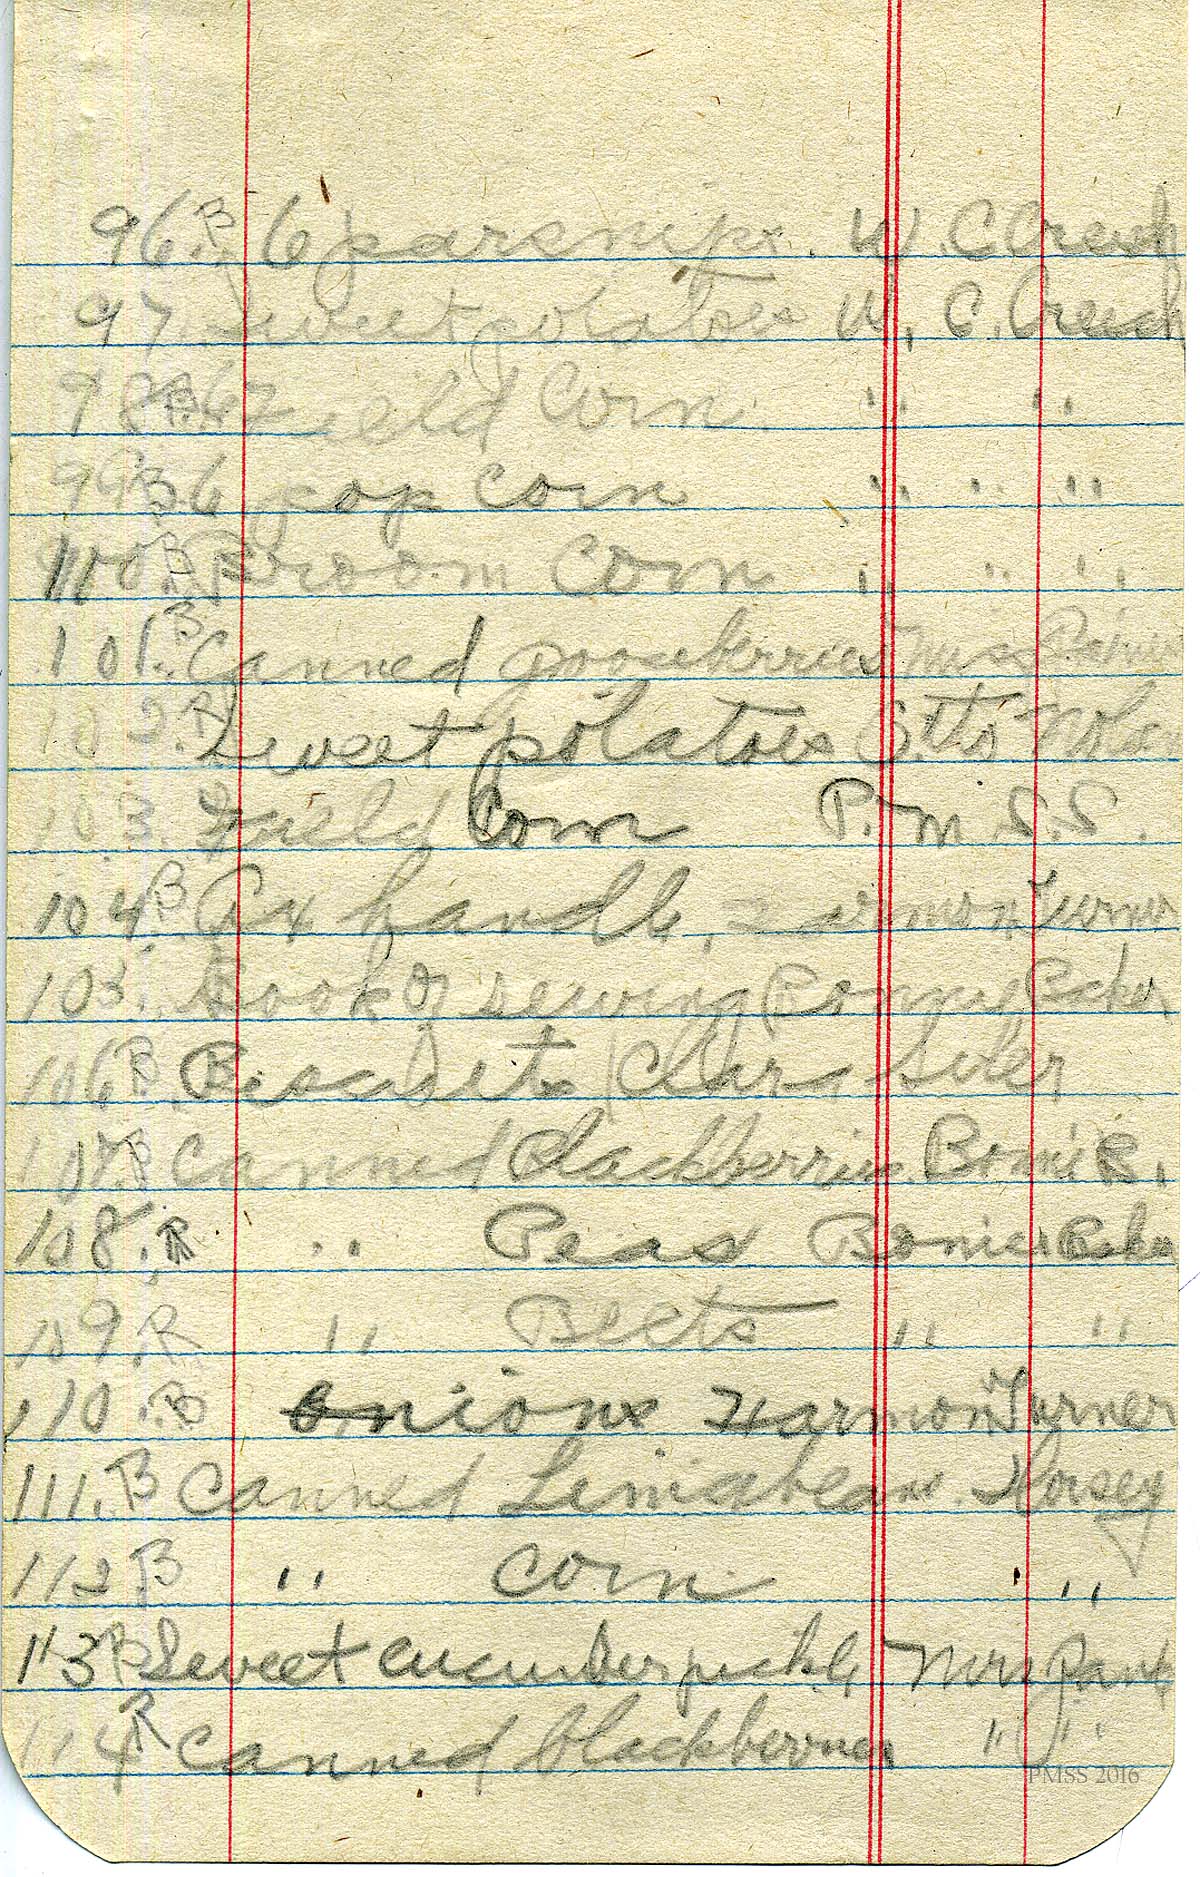 96. B 6 parsnips. W. C Creech
97 Sweet potatoes W. C. Creech
98 B. 6 Field Corn " "
99 B. 6 pop corn " " "
100. B. Broom Corn " " "
101. B Canned gooseberries
102. R Sweet potatoes Otto Nolan
103. Field Corn P. M. S. S.
104. B Ax handle, Harmon Turner
105. Book of sewing Bonnie Baker
106 B Biscuits Clara Siler
107. B Canned Blackberries. Bonnie B.
108. R " Peas Bonie Baker
109. R " Beets " "
110. B Onions Harmon Turner
111. B Canned Limabeans.
112 B " Corn " "
113 B Sweet cucumber pickle Mrs
114 R Canned blackberries " "
PMSS 2016